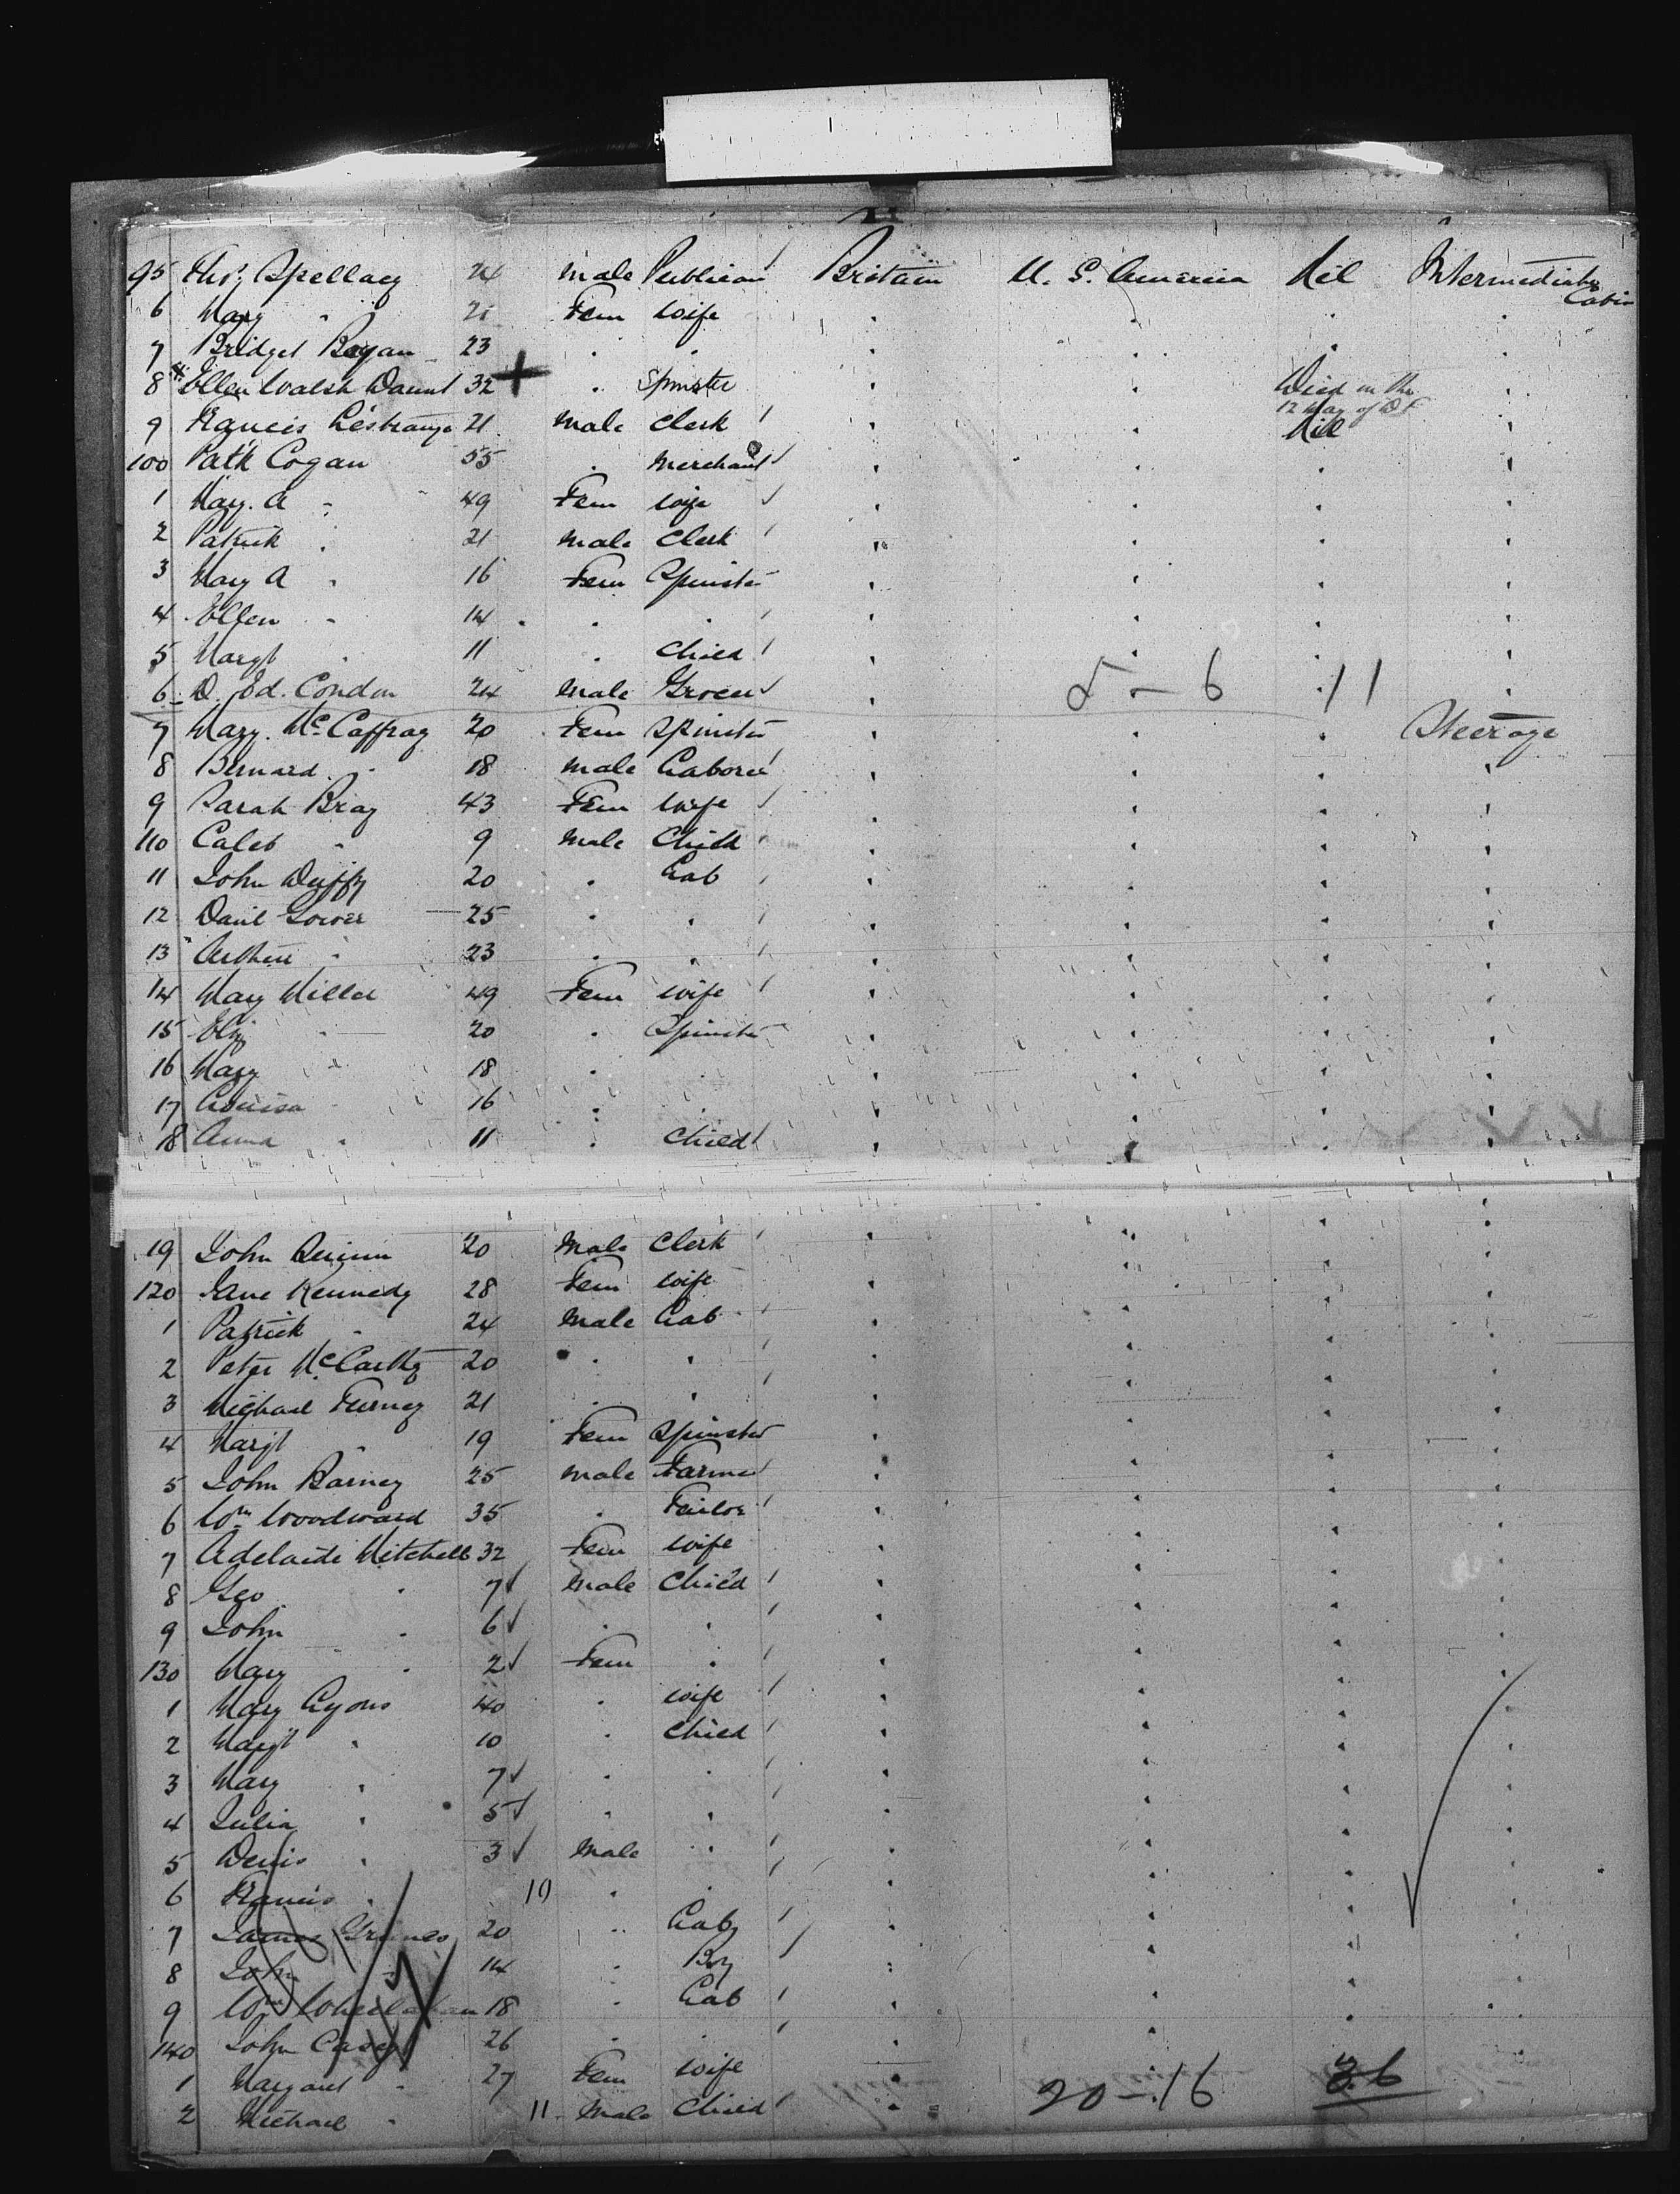 95 Thos. Spellacy 24 male Publican Britain U. S. America Nil Intermediate Cabin
6 Mary " 21 Fem wife
7 Bridget Bogan 23 " "
8 Ellen Walsh Daunt 32 + " Spinster Died on the 12 May of
9 Francis L'estrange 21 male Clerk Nil
100 Patk Cogan 55 " Merchant
1 Mary. A " 49 Fem wife
2 Patrick " 21 male Clerk
3 Mary A " 16 Fem Spinster
4 Ellen " 14 " "
5 Margt " 11 " Child
6 D. Ed. Condon 24 male Grocer 5 - 6 11
7 Mary. McCaffray 20 Fem Spinster Steerage
8 Bernard " 18 male Laborer
9 Sarah Bray 43 Fem wife
110 Caleb " 9 male Child
11 John Duffy 20 " Lab
12 Danl Gower 25 " "
13 Arthur " 23 " "
14 Mary Miller 49 Fem wife
15 Eliz " 20 " Spinster
16 Mary " 18 " "
17 Louisa " 16 " "
18 Anna " 11 " Child
19 John Quinn 20 Male Clerk
120 Jane Kennedy 28 Fem wife
1 Patrick " 24 Male Lab
2 Peter McCarthy 20 " "
3 Michael Furney 21 " "
4 Margt " 19 Fem Spinster
5 John Barney 25 male Farmer
6 Wm Woodward 35 " Tailor
7 Adelaide Mitchell 32 Fem wife
8 Geo " 7 Male Child
9 John " 6 " "
130 Mary " 2 Fem "
1 Mary Lyons 40 " wife
2 Margt " 10 " Child
3 Mary " 7 " "
4 Julia " 5 " "
5 Denis " 3 Male "
6 Francis " 10 " "
7 James Grimes 20 " Lab
8 John " 14 " Boy
9 Wm Wheelahan 18 " Lab
140 John Casey 26 " "
1 Margaret " 27 Fem wife 20 - 16 36
2 Michael " 11 Male Child